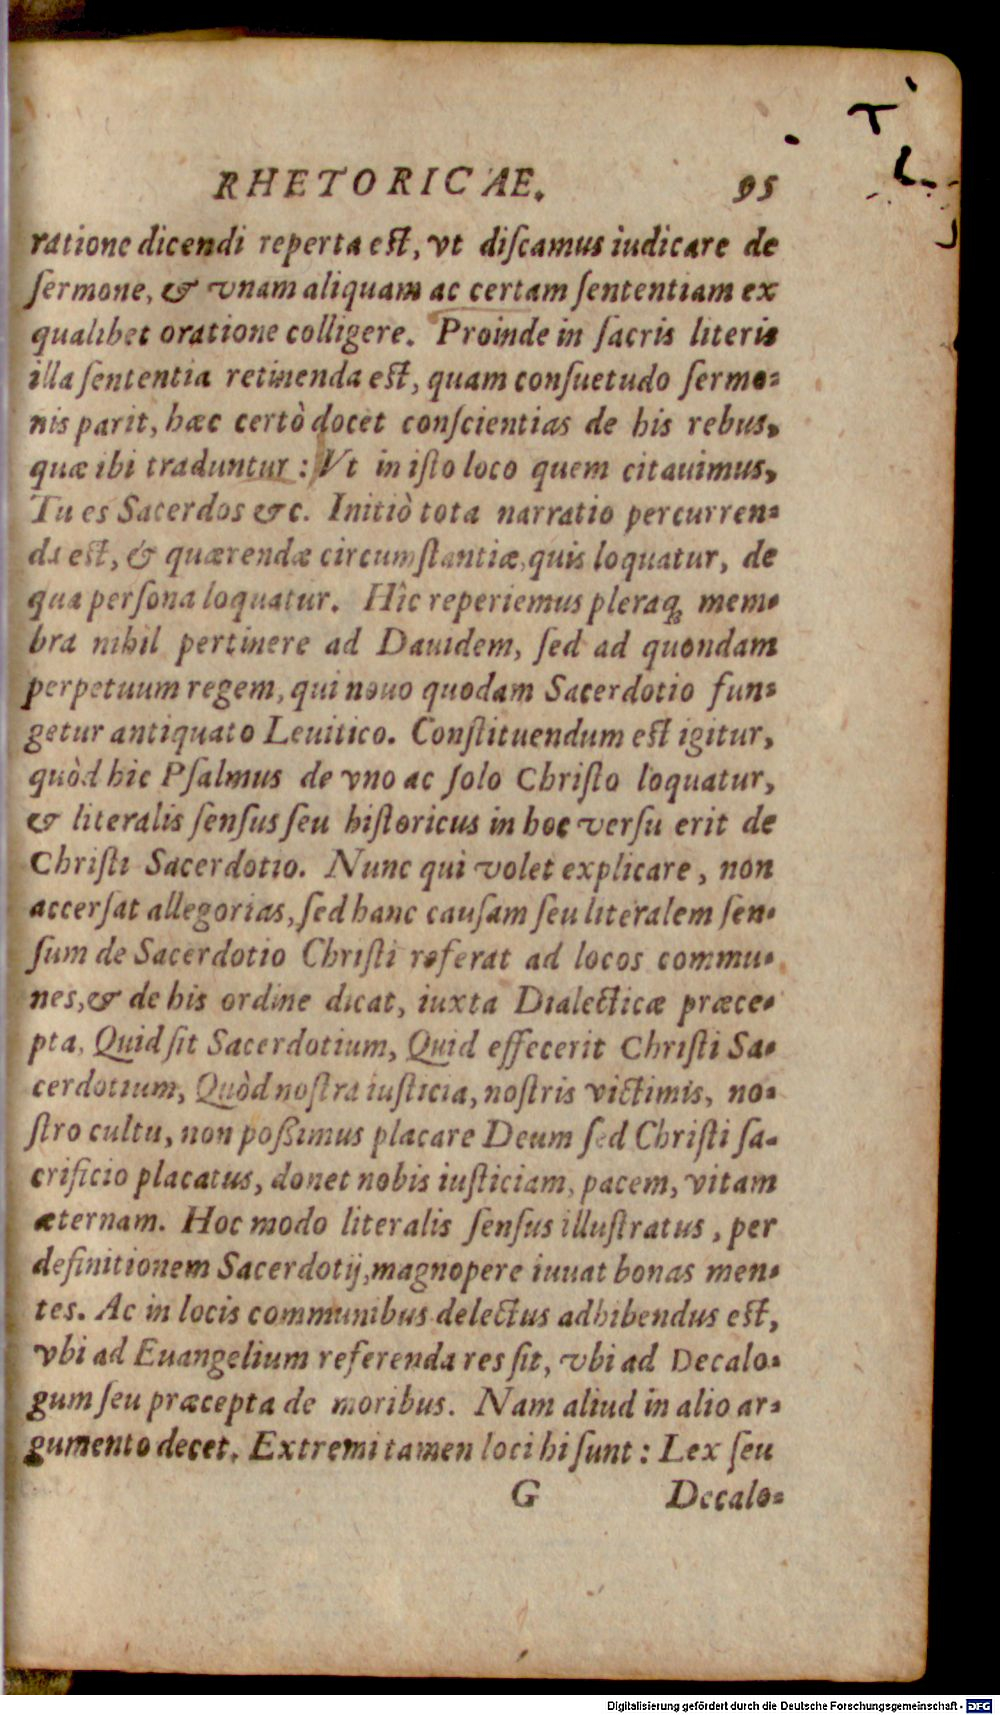 RHETORICAE. 95
ratione dicendi reperta est, vt discamus iudicare de
sermone, & vnam aliquam ac certam sententiam ex
qualibet oratione colligere. Proinde in sacris literis
illa sententia retinenda est, quam consuetudo sermo-
nis parit, hæc certò docet conscientias de his rebus,
quæ ibi traduntur: Vt in isto loco quem citauimus,
Tu es Sacerdos &c. Initiò tota narratio percurren-
da est, & quærendæ circumstantiæ, quis loquatur, de
qua persona loquatur. Hîc reperiemus pleraq; mem-
bra nihil pertinere ad Dauidem, sed ad quondam
perpetuum regem, qui nouo quodam Sacerdotio fun-
getur antiquato Leuitico. Constituendum est igitur,
quòd hic Psalmus de vno ac solo Christo loquatur,
& literalis sensus seu historicus in hoc versu erit de
Christi Sacerdotio. Nunc qui volet explicare, non
accersat allegorias, sed hanc causam seu literalem sen-
sum de Sacerdotio Christi referat ad locos commu-
nes, & de his ordine dicat, iuxta Dialecticæ præce-
pta, Quid sit Sacerdotium, Quid effecerit Christi Sa-
cerdotium, Quòd nostra iusticia, nostris victimis, no-
stro cultu, non poßimus placare Deum sed Christi sa-
crificio placatus, donet nobis iusticiam, pacem, vitam
æternam. Hoc modo literalis sensus illustratus, per
definitionem Sacerdotij, magnopere iuuat bonas men-
tes. Ac in locis communibus delectus adhibendus est,
vbi ad Euangelium referenda res sit, vbi ad Decalo-
gum seu præcepta de moribus. Nam aliud in alio ar-
gumento decet. Extremi tamen loci hi sunt: Lex seu
G Decalo-
Digitalisierung gefördert durch die Deutsche Forschungsgemeinschaft - DFG